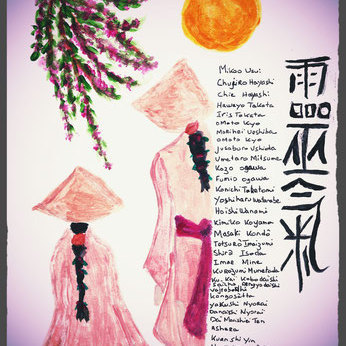 Mikao Usui
Chujiro Hayashi
Chie Hayashi
Hawayo Takata
Iris Takata
omoto Kyo
Morihei Ueshiba
omoto Kyo
Jusaburo Ushida
Umetaro Mitsume
Kozo ogawa
Fumio ogawa
Kanichi Taketomi
Yoshiharu Watanabe
Hoishi Wanami
Kimiko Koyama
Masaki Kondō
Tatsuro Imaizumi
Shiro Isoda
Imae Mine
Kurayumi Munetada
Ku Kai Kobodaishi
saicho Dengyodaishi
kongosatta
yakushi Nyorai
Danaichi Nyorai
Dai Marishi Ten
Ashara
Kuan shi Yin
靈气